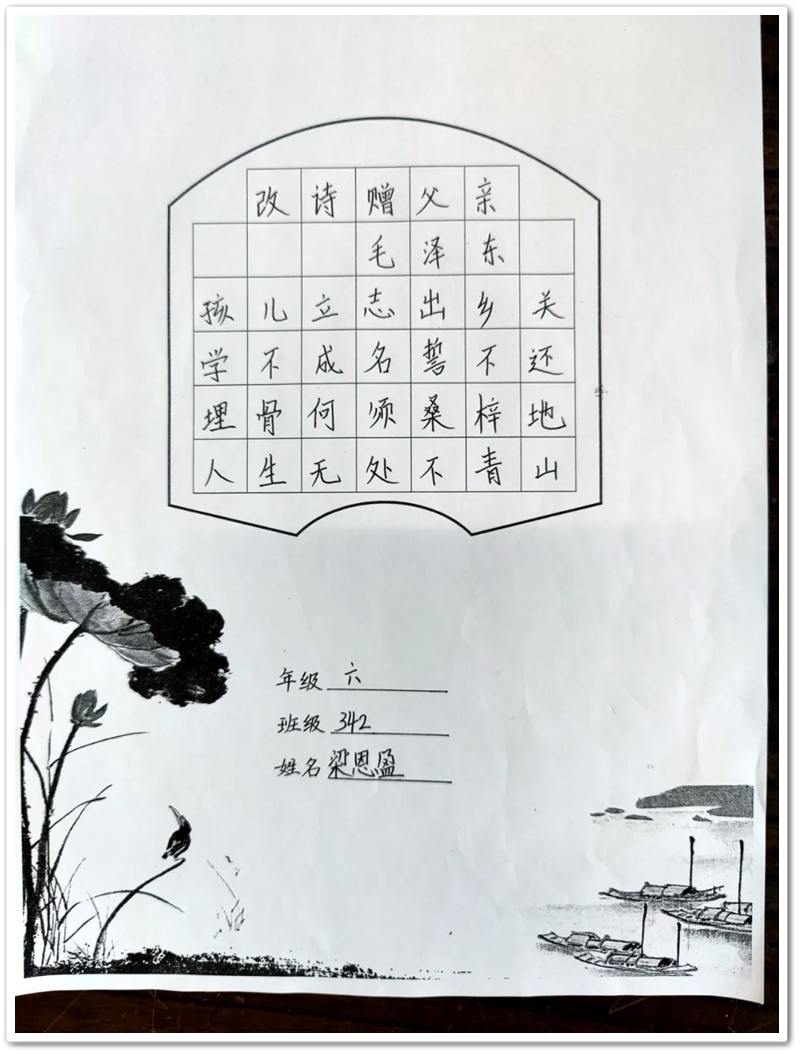 改诗赠父亲
毛泽东
孩儿立志出乡关
学不成名誓不还
埋骨何须桑梓地
人生无处不青山
年级 六
班级 342
姓名 梁恩盈